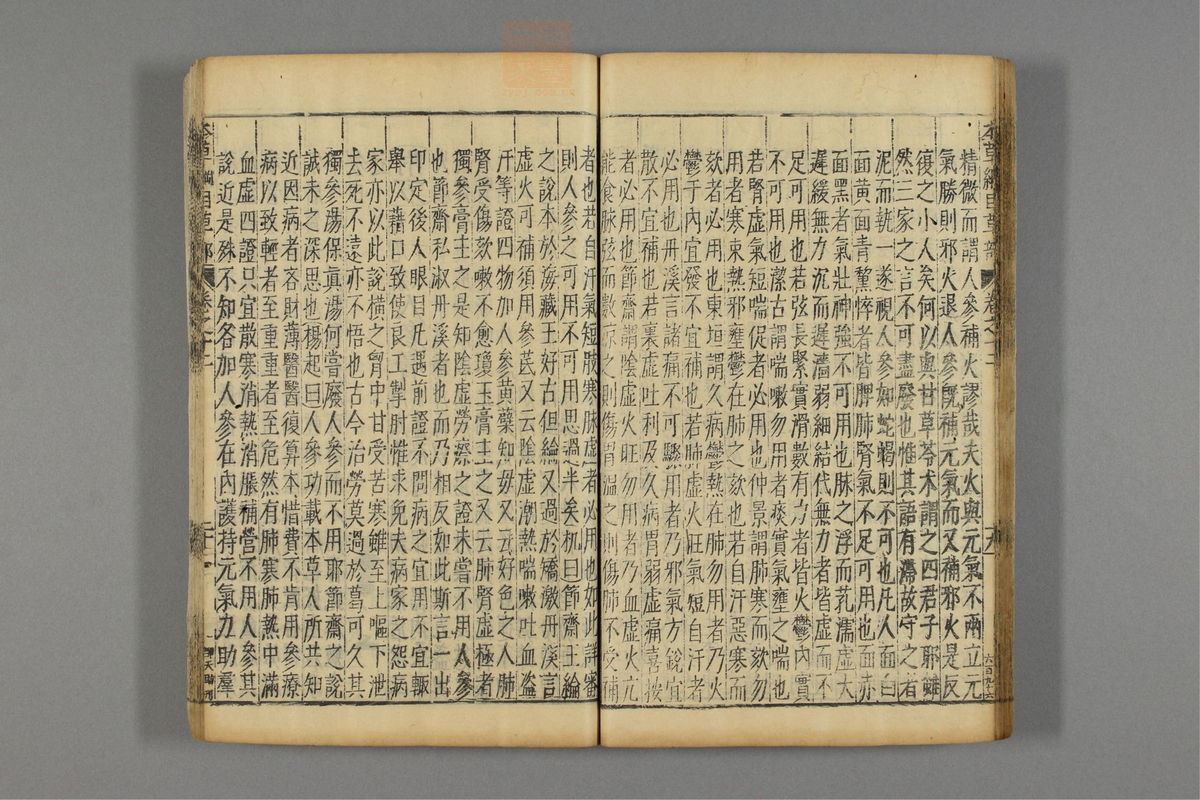 本草綱目草部 卷之十二
精微而謂人參補火謬哉夫火與元氣不兩立元
氣勝則邪火退人參既補元氣而又補邪火是反
復之小人矣何以與甘草苓朮謂之四君子耶雖
然三家之言不可盡廢也惟其語有滯故守之者
泥而執一遂視人參如蛇蝎則不可也凡人面白
面黃面青黧悴者皆脾肺腎氣不足可用也面赤
面黑者氣壯神強不可用也脉之浮而芤濡虛大
遲緩無力沉而遲濇弱細結代無力者皆虛而不
足可用也若弦長緊實滑數有力者皆火鬱內實
不可用也潔古謂喘嗽勿用者痰實氣壅之喘也
若腎虛氣短喘促者必用也仲景謂肺寒而欬勿
用者寒束熱邪壅鬱在肺之欬也若自汗惡寒而
欬者必用也東垣謂久病鬱熱在肺勿用者乃火
鬱于內宜發不宜補也若肺虛火旺氣短自汗者
必用也丹溪言諸痛不可驟用者乃邪氣方銳宜
散不宜補也若裏虛吐利及久病胃弱虛痛喜按
者必用也節齋謂陰虛火旺勿用者乃血虛火亢
能食脉弦而數凉之則傷胃溫之則傷肺不受補
者也若自汗氣短肢寒脉虛者必用也如此詳審
則人參之可用不可用思過半矣机曰節齋王綸
之說本於海藏王好古但綸又過於矯激丹溪言
虛火可補須用參芪又云陰虛潮熱喘嗽吐血盜
汗等證四物加人參黃蘗知母又云好色之人肺
腎受傷欬嗽不愈瓊玉膏主之又云肺腎虛極者
獨參膏主之是知陰虛勞瘵之證未嘗不用人參
也節齋私淑丹溪者也而乃相反如此斯言一出
印定後人眼目凡遇前證不問病之宜用不宜輒
舉以藉口致使良工掣肘惟求免夫病家之怨病
家亦以此說橫之胷中甘受苦寒雖至上嘔下泄
去死不遠亦不悟也古今治勞莫過於葛可久其
獨參湯保真湯何嘗廢人參而不用耶節齋之說
誠未之深思也楊起曰人參功載本草人所共知
近因病者吝財薄醫醫復算本惜費不肯用參療
病以致輕者至重重者至危然有肺寒肺熱中滿
血虛四證只宜散寒消熱消脹補營不用人參其
說近是殊不知各加人參在內護持元氣力助羣
本草綱目草部 卷之十二 二十